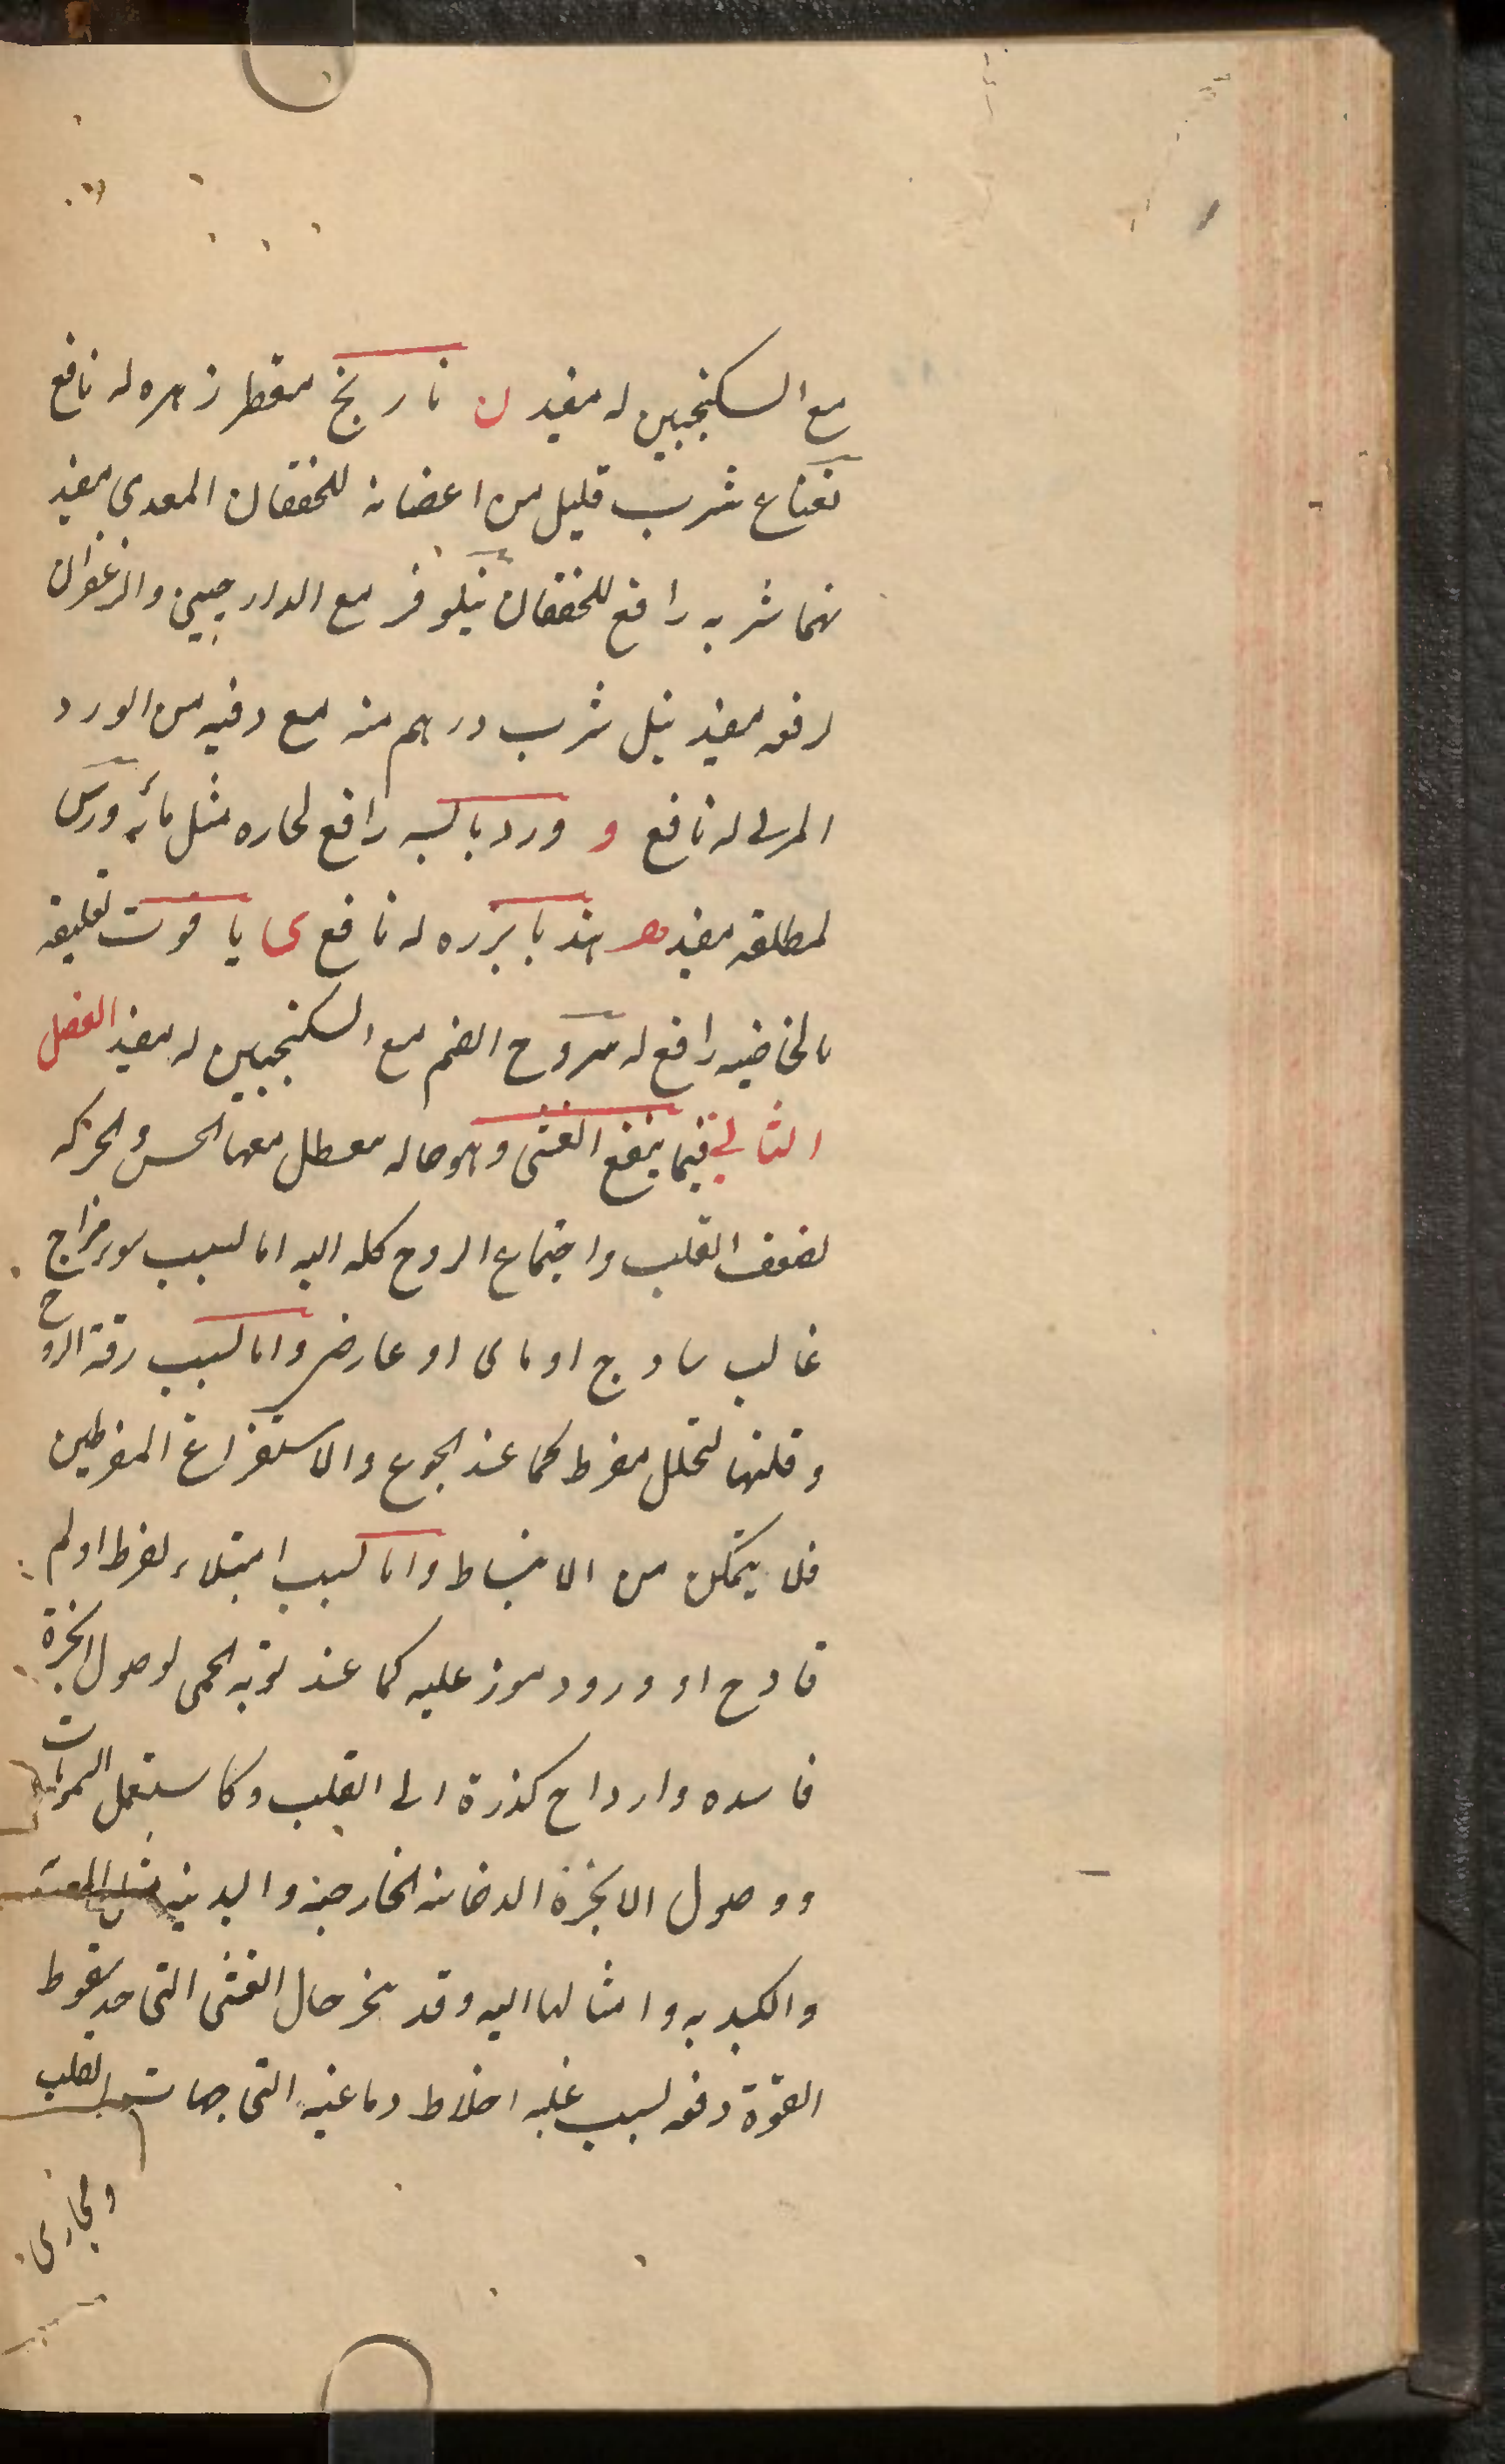 مع السكنجبين له مفيد ن نارنج مقطر زهره له نافع
نعناع شرب قليل من اعضانه للخفقان المعدى مفيد
شربه رافع للخفقان نيلوفر مع الدارچينى والزعفران
لرفعه مفيد نيل شرب درهم منه مع دفيه من الورد
المربى له نافع و ورد يابسه رافع لحاره مثل مائه ورس
لمطلقه مفيد ه هندبا بزره له نافع ى ياقوت تعليقه
بالخاصيه رافع له الضم مع السكنجبين له مفيد الفصل
الثانى فيما ينفع الغشى وهو حاله معطل معها الحس والحركه
لضعف القلب واجتماع الروح كله اليه اما لسبب سوء مزاج
غالب سادج او مادى او عارض واما لسبب رقة الروح
وقلتها لتحلل مفرط كما عند الجوع والاستفراغ المفرطين
فلا يتمكن من الانبساط واما لسبب امتلاء لفرط او لم
قادح او ورود موذ عليه كما عند نوبه الحمى لوصول ابخرة
فاسده وارواح كذرة الى القلب وكاستعمل
ووصول الابخرة الدخانيه الخارجيه والبدنيه
والكبديه وامثالها اليه وقد ينجر حال الغشى الى حد سقوط
القوة دفعه لسبب غلبه اخلاط دماغيه التى جهات القلب
ومجارى